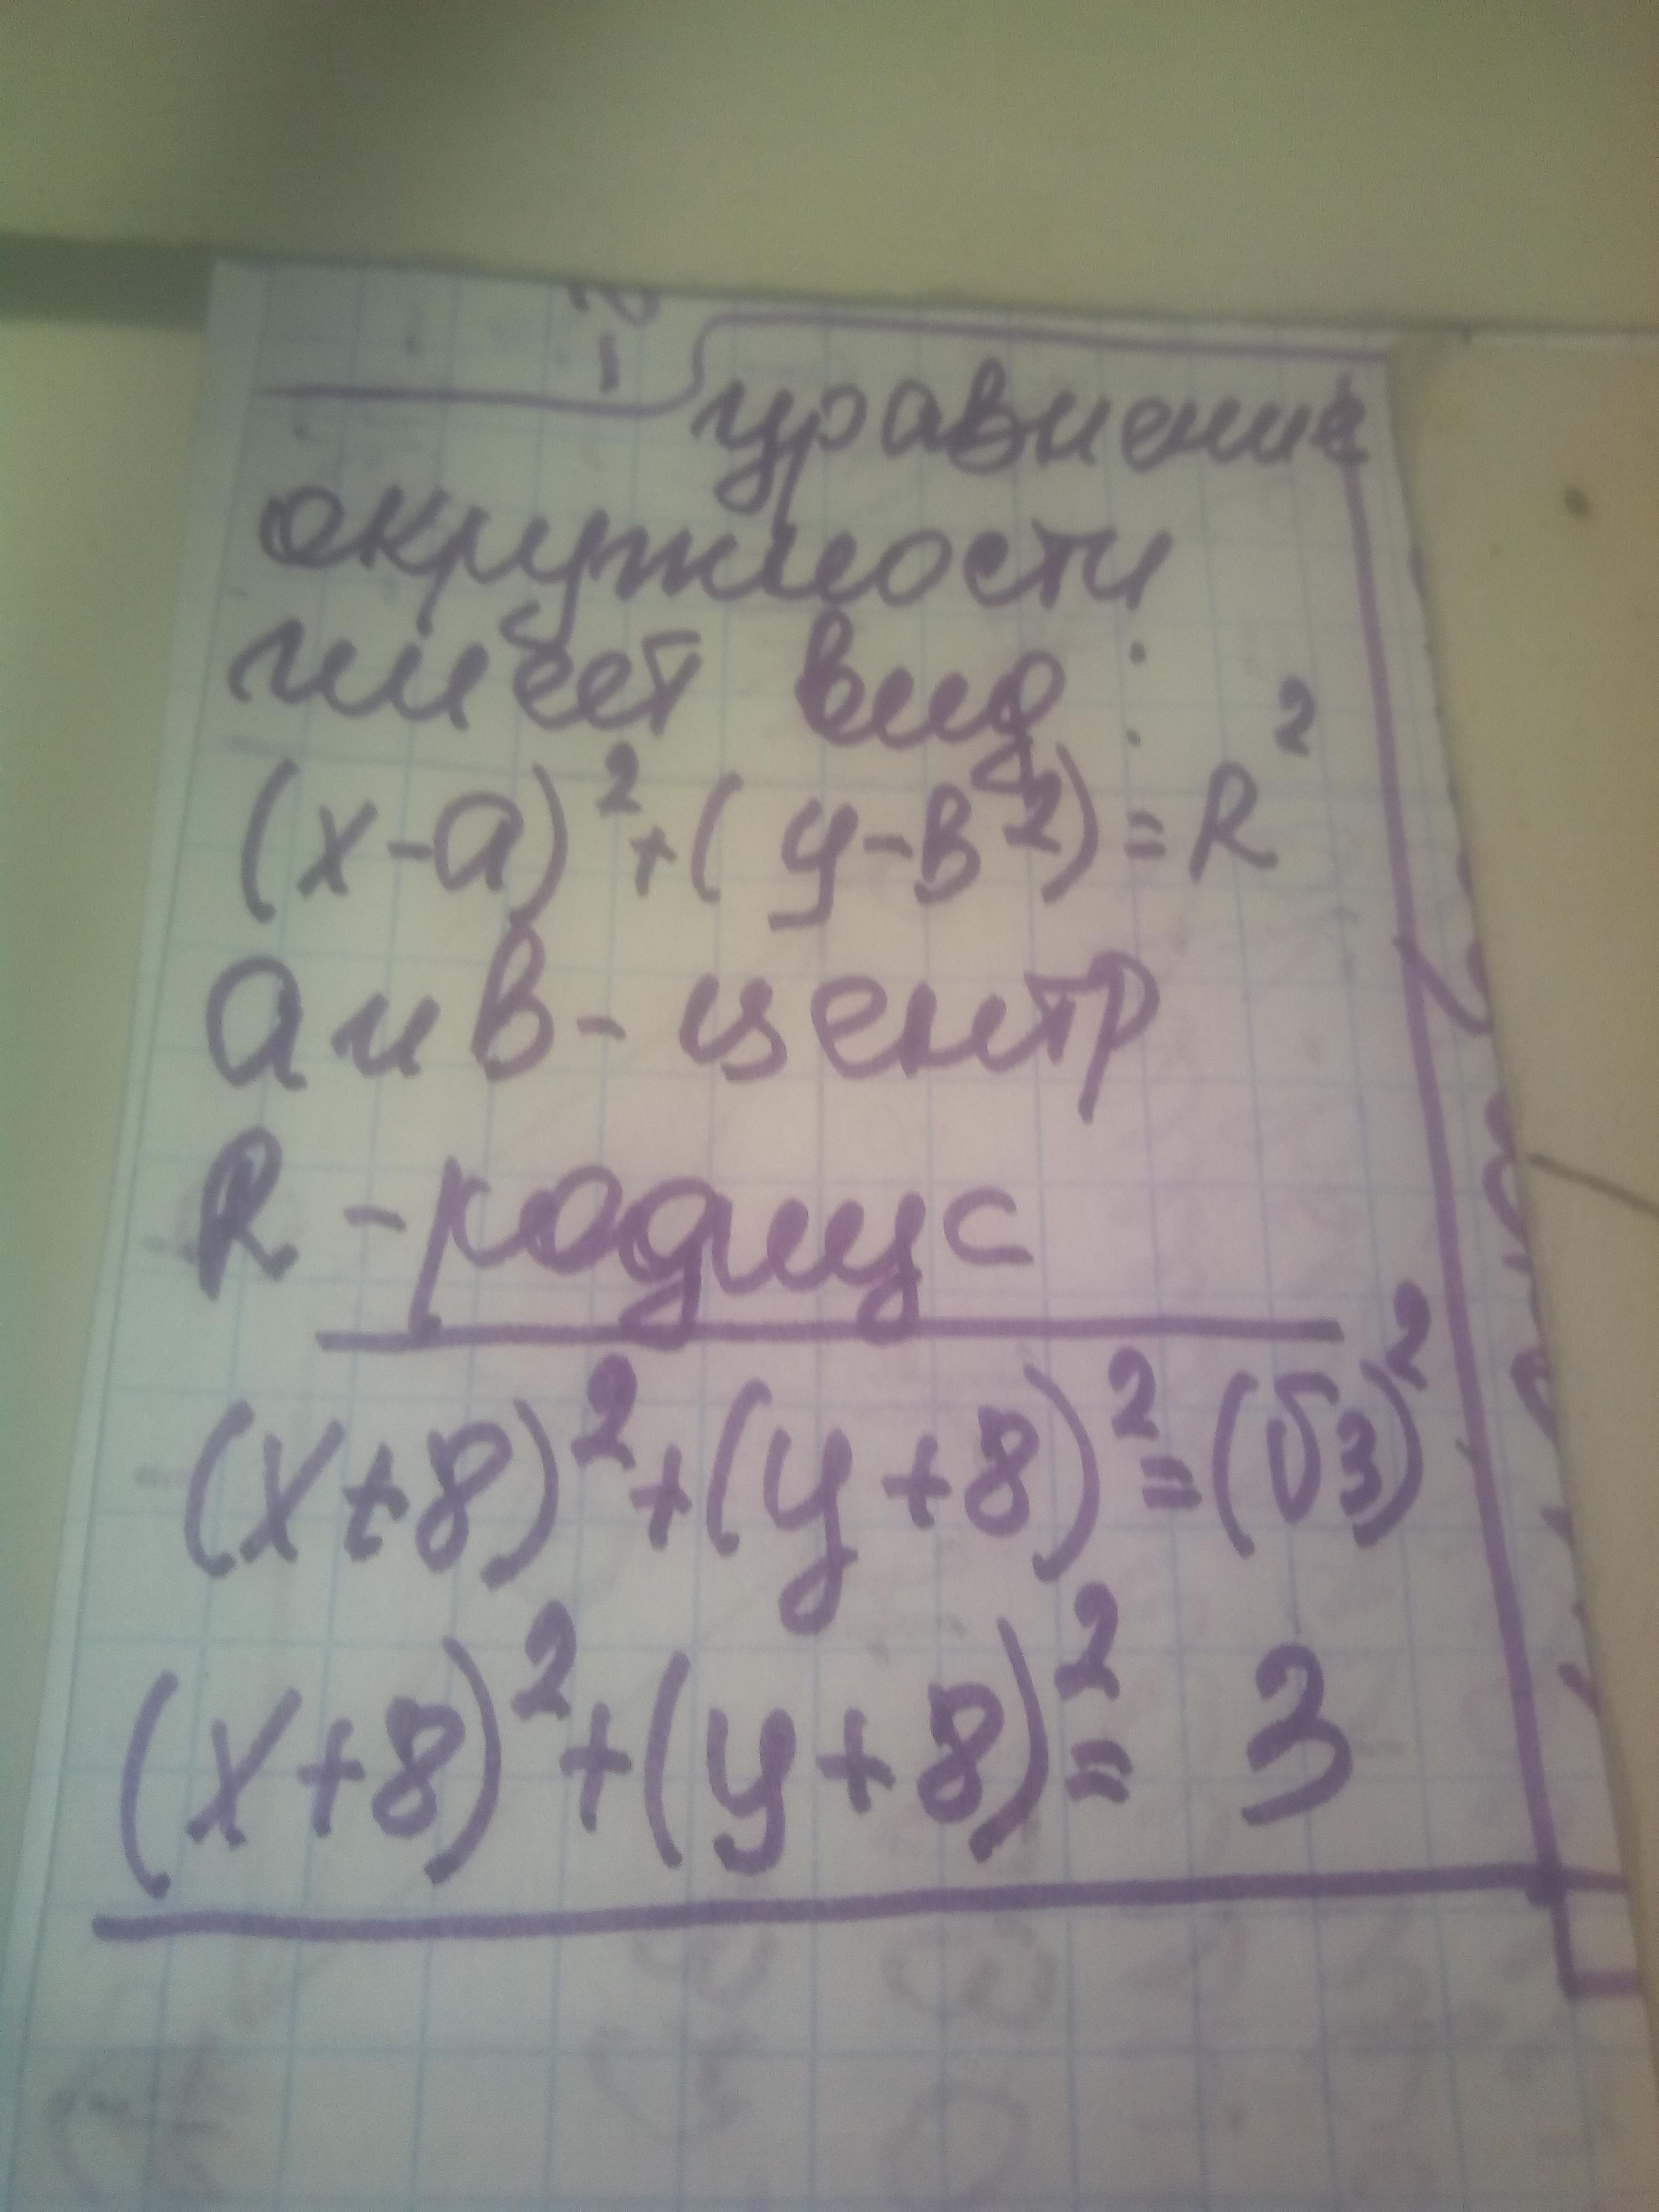 уравнение
окружности
имеет вид:
(x-a)²+(y-в²)=R²
а и в - центр
R - радиус
(x+8)²+(y+8)²=(√3)²
(x+8)²+(y+8)²= 3